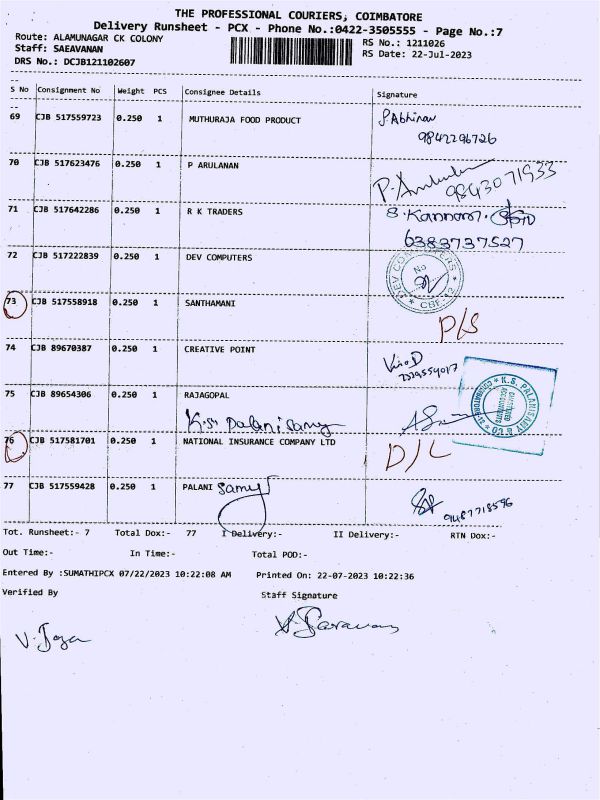 THE PROFESSIONAL COURIERS, COIMBATORE
Delivery Runsheet - PCX - Phone No.:0422-3505555 - Page No.:7
Route: ALAMUNAGAR CK COLONY
RS No.: 1211026
Staff: SAEAVANAN
RS Date: 22-Jul-2023
DRS No.: DCJB121102607
S No Consignment No Weight PCS Consignee Details Signature
69 CJB 517559723 0.250 1 MUTHURAJA FOOD PRODUCT S.Abhinav
9842296726
70 CJB 517623476 0.250 1 P ARULANAN
9843071933
71 CJB 517642286 0.250 1 R K TRADERS S.Kannan.
6383737527
72 CJB 517222839 0.250 1 DEV COMPUTERS
DEV COMPUTERS
No
73 CJB 517558918 0.250 1 SANTHAMANI
P/S
74 CJB 89670387 0.250 1 CREATIVE POINT
75 CJB 89654306 0.250 1 RAJAGOPAL
K.S. Palanisamy
K.S. PALANISAMY
76 CJB 517581701 0.250 1 NATIONAL INSURANCE COMPANY LTD D/L
77 CJB 517559428 0.250 1 PALANI Samy
9487718596
Tot. Runsheet:- 7 Total Dox:- 77 I Delivery:- II Delivery:- RTN Dox:-
Out Time:- In Time:- Total POD:-
Entered By :SUMATHIPCX 07/22/2023 10:22:08 AM Printed On: 22-07-2023 10:22:36
Verified By Staff Signature